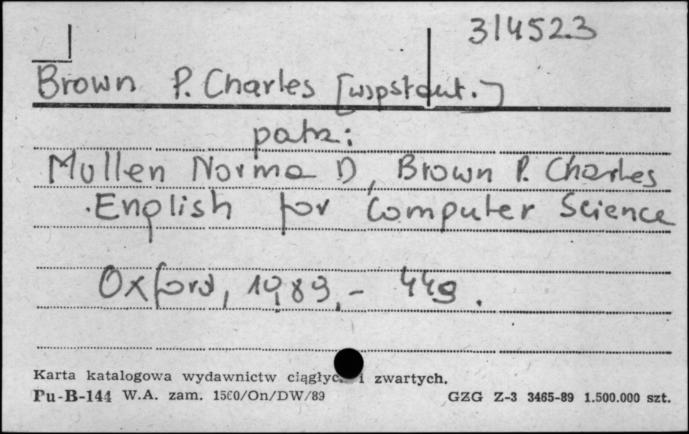 314523
Brown P. Charles [współaut.]
patrz:
Mullen Norma D, Brown P. Charles
English for Computer Science
Oxford, 1989, - 449.
Karta katalogowa wydawnictw ciągłych i zwartych.
Pu-B-144 W.A. zam. 1500/On/DW/89 GZG Z-3 3465-89 1.500.000 szt.